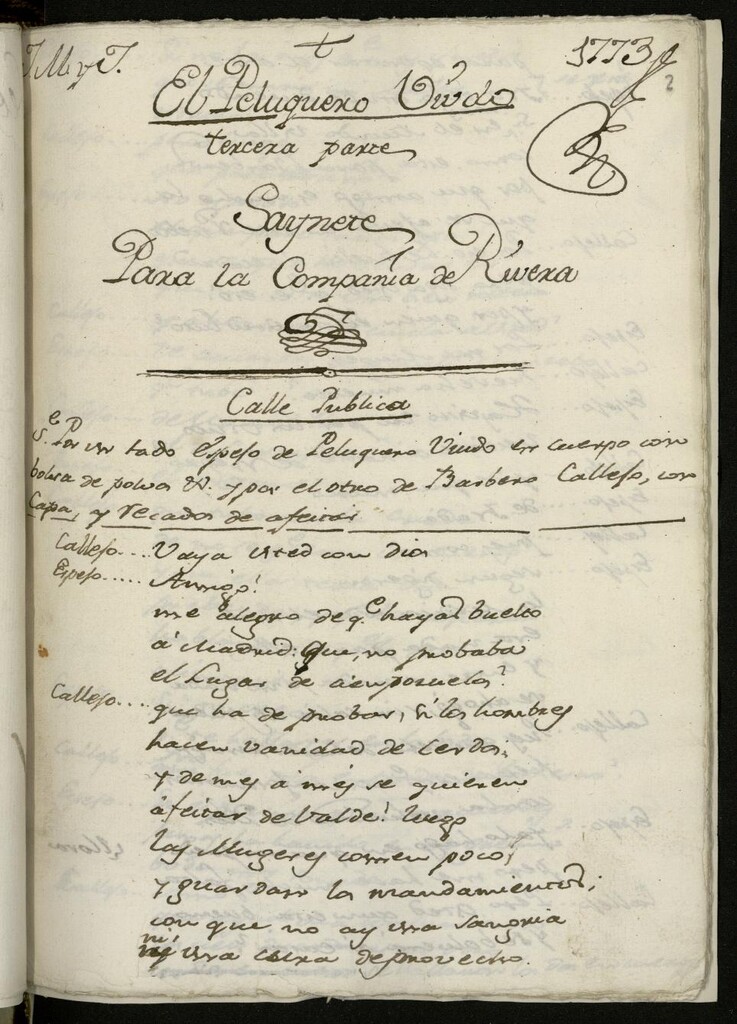 J. M. y J. † 1773
2
El Peluquero Viudo
tercera parte
Saynete
Para la Compañia de Rivera
Calle Publica
Se. Por un lado Espejo de Peluquero Viudo en cuerpo con
bolsa de polvos &. y por el otro de Barbero Callejo, con
Capa, y recados de afeitar
Callejo.... Vaya usted con dios
Espejo..... Amigo!
me alegro de qe. hayas buelto
á Madrid: Que, no probaba
el Lugar de
Callejo.... que ha de probar, si los hombres
hacen vanidad de cerdos;
y de mes á mes se quieren
afeitar de valde! luego
las Mugeres comen poco,
y guardan los mandamientos;
con que no ay una sangria
ni una cura de provecho.